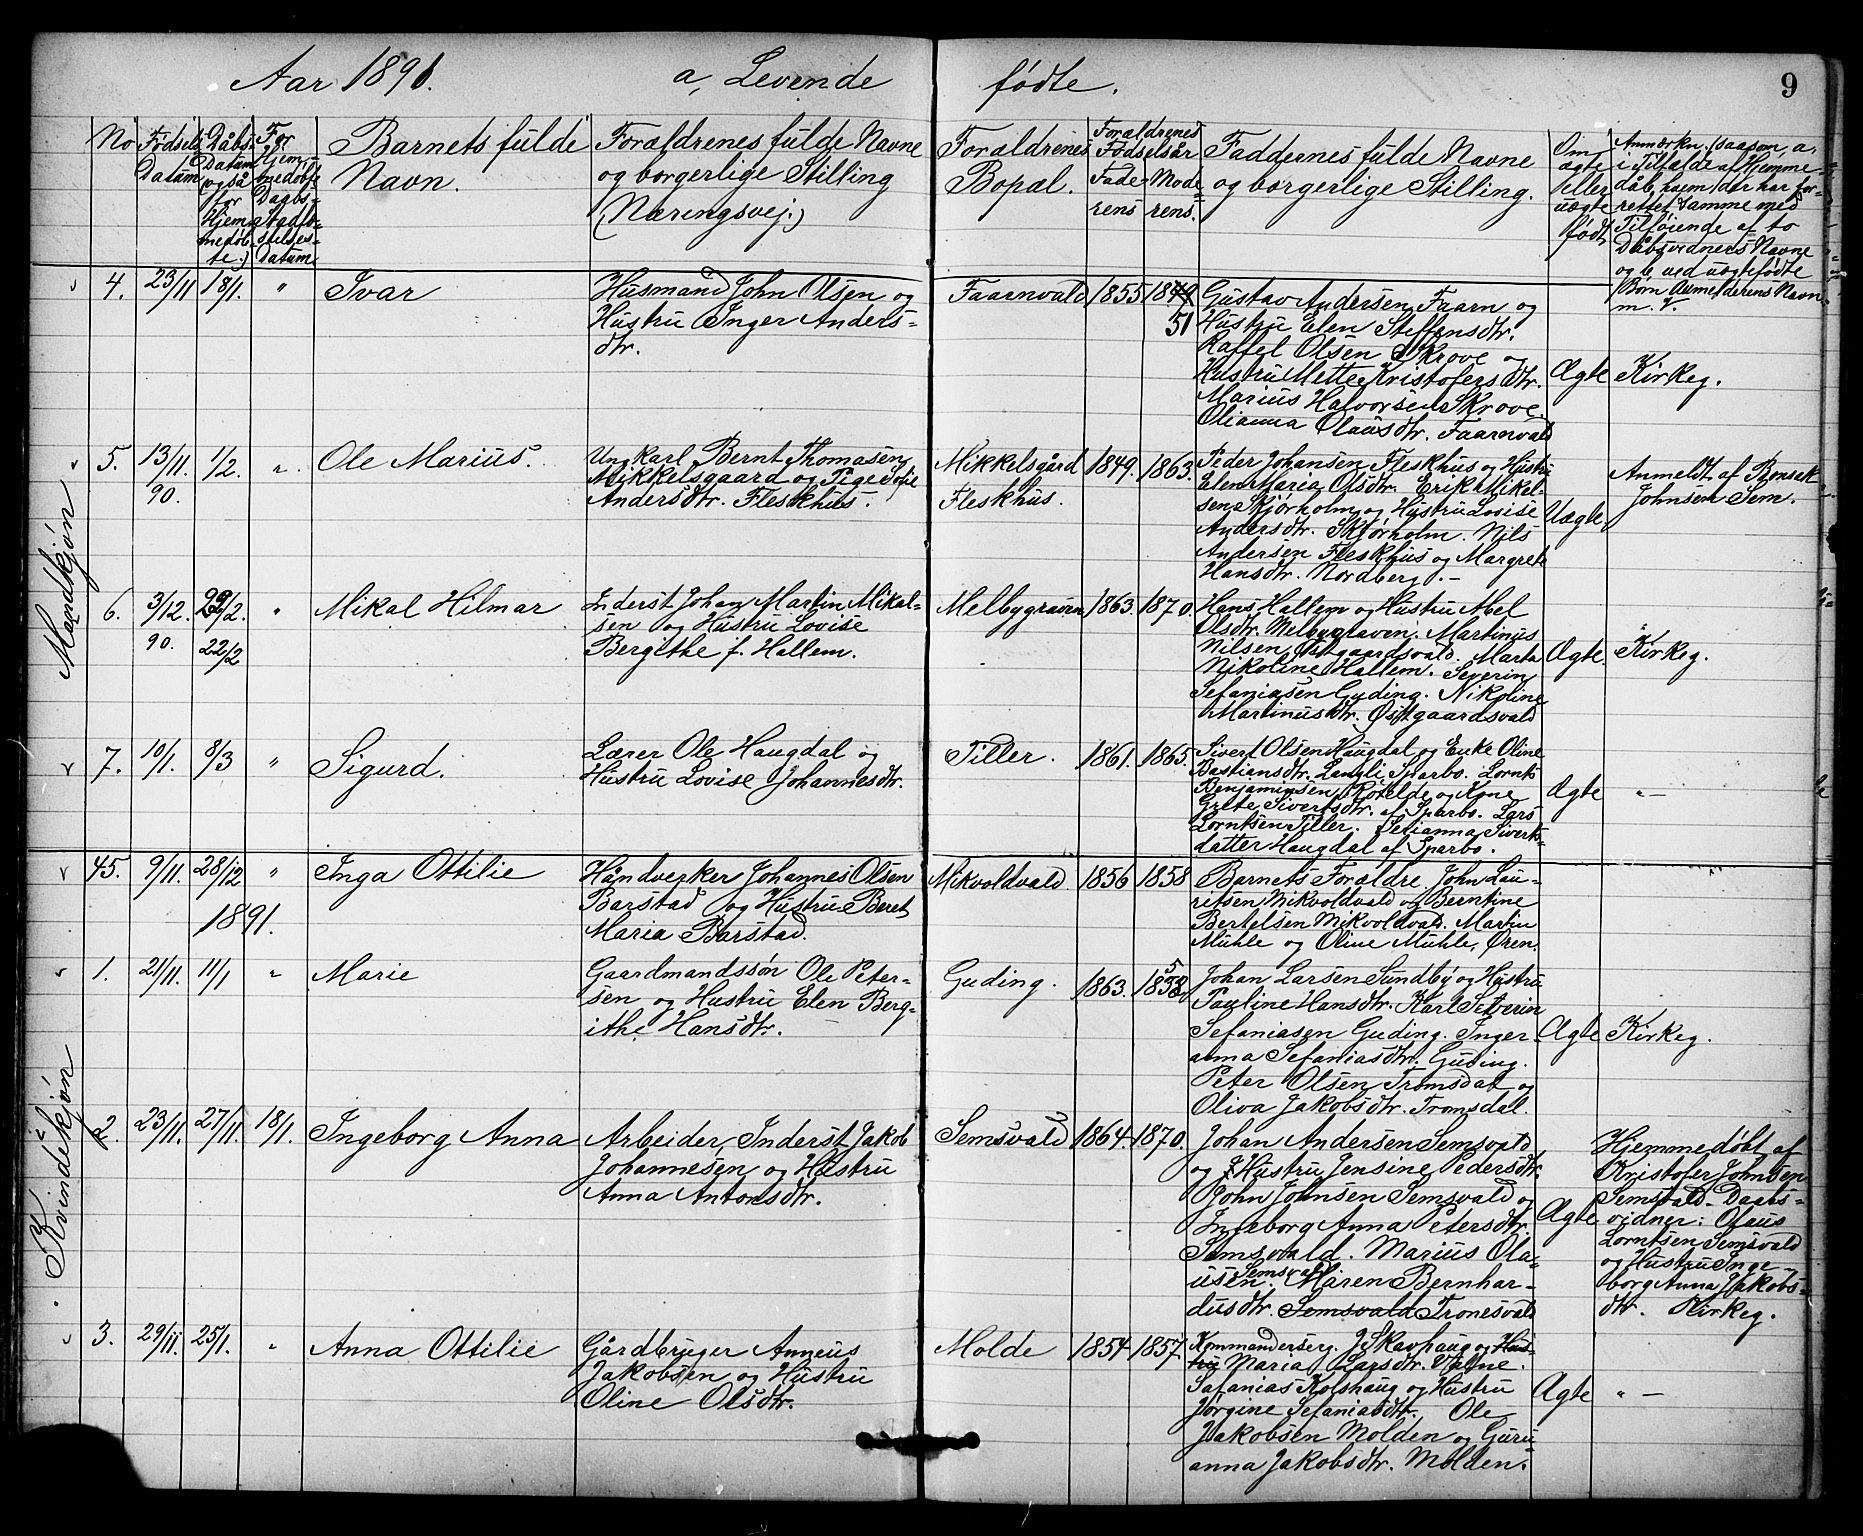 Aar 1891. a, Levende fødte. 9
No
Fødsels
Datum
Dåbs
Datum
(også
for
Hjem
medøb-
te.)
For
Hjem
medøbte
Daabs-
stadfæ-
stelses-
Datum
Barnets fulde
Navn.
Forældrenes fulde Navne
og borgerlige Stilling
(Næringsvej.)
Forældrenes
Bopæl.
Forældrenes
Fødselsår
Fade-
rens
Mode
rens.
Faddernes fulde Navne
og borgerlige Stilling.
Om
ægte
eller
uægte
født
Anmærkn. (saasom, a,
i Tilfælde af Hjemme-
dåb, hvem der har for-
rettet samme med
Tilføiende af to
Dåbsvidners Navne
og b, ved uægtefødte
Børn Anmelderens Navn
m. V.
Mandkjøn
4. 23/11 18/1. " Ivar
Husmand John Olsen og
Hustru Inger Anders-
dtr.
Faarnvald 1855 1849
51
Gustav Andersen Faarn og
Hustru Elen Steffensdtr.
Raffel Olsen Skrove og
Hustru Mette Kristofersdtr.
Marius Halvorsen Skrove.
Olianna Olausdtr. Faarnvald
Ægte Kirkeg.
5. 13/11. 1/2. " Ole Marius.
90.
Ungkarl Bernt Thomasen
Mikkelsgaard og Pige Sofie
Andersdtr. Fleskhus.
Mikkelsgård 1849. 1863.
Fleskhus.
Peder Johansen Fleskhus og Hustru
Elen Maria Olsdtr. Erik Mikel-
sen Skjørholm og Hustru Lovise
Andersdtr. Skjørholm. Nils
Andersen Fleskhus og Margrete
Hansdtr. Nordberg.-
Uægte
Anmeldt af
Johnsen Sem.
6. 3/12. 22/2. " Mikal Hilmar
90. 22/2
Inderst Johan Martin Mikal-
sen og Hustru Lovise
Bergithe f. Hallem.
Melbygraven 1863. 1870.
Hans Hallem og Hustru Abel
Olsdtr. Melbygraven. Martinus
Nilsen Østgaardsvald. Marta
Nikoline Hallem. Severin
Sefaniasen Guding. Nikoline
Martinusdtr. Østgaardsvald
Ægte Kirkeg.
7. 10/1. 8/3 " Sigurd.
Lærer Ole Haugdal og
Hustru Lovise Johannesdtr.
Tiller. 1861. 1865.
Sivert Olsen Haugdal og Enke Oline
Bastiansdtr. Langli Sparbo. Lornts
Benjaminsen Røtelde og Kone
Grete Sivertsdtr. af Sparbo. Lars
Lorntsen Tiller. Selianna Siverts-
datter Haugdal af Sparbo.
Ægte "-
Kvindekjøn
45. 9/11. 28/12 " Inga Ottilie
Håndverker Johannes Olsen
Barstad og Hustru Beret
Maria Barstad.
Mikvoldvald 1856 1858
Barnets Forældre. John Lau-
ritsen Mikvoldvald og Berntine
Bertelsen Mikvoldvald. Martin
Mühle og Oline Mühle, Øren.
1891.
1. 21/11. 11/1 " Marie
Gaardmandssøn Ole Peter-
sen og Hustru Elen Berg-
ithe Hansdtr.
Guding. 1863. 1853
Johan Larsen Sundby og Hustru
Pauline Hansdtr. Karl Severin
Sefaniasen Guding. Inger
anna Sefaniasdtr. Guding.
Peter Olsen Tromsdal og
Oliva Jakobsdtr. Tromsdal.
Ægte Kirkeg.
2. 23/11. 27/11 18/1. Ingeborg Anna
Arbeider, Inderst Jakob
Johannesen og Hustru
Anna Antonsdtr.
Semsvald 1864. 1870.
Johan Andersen Semsvald
og Hustru Jensine Pedersdtr.
John Johnsen Semsvald og
Ingeborg Anna Petersdtr.
Semsvald. Marius Ola-
usen. Semsvald Maren Bernhar-
dusdtr. Semsvald Tronesvald
Ægte
Hjemmedøbt af
Kristofer Johnsen
Semsvald. Daabs-
vidner: Olaus
Lorntsen Semsvald
og Hustru Inge-
borg Anna Jakobs-
dtr. Kirkeg.
3. 29/11. 25/1. " Anna Ottilie
Gårdbruger Anneus
Jakobsen og Hustru
Oline Olsdtr.
Molde 1854 1857
Kommanderserg. J. Skavhaug og Hus-
tru Maria Larsdtr.
Safanias Kolshaug og Hustru
Jørgine Sefaniasdtr. Ole
Jakobsen Molden og Guru
anna Jakobsdtr. Molden.
Ægte "-